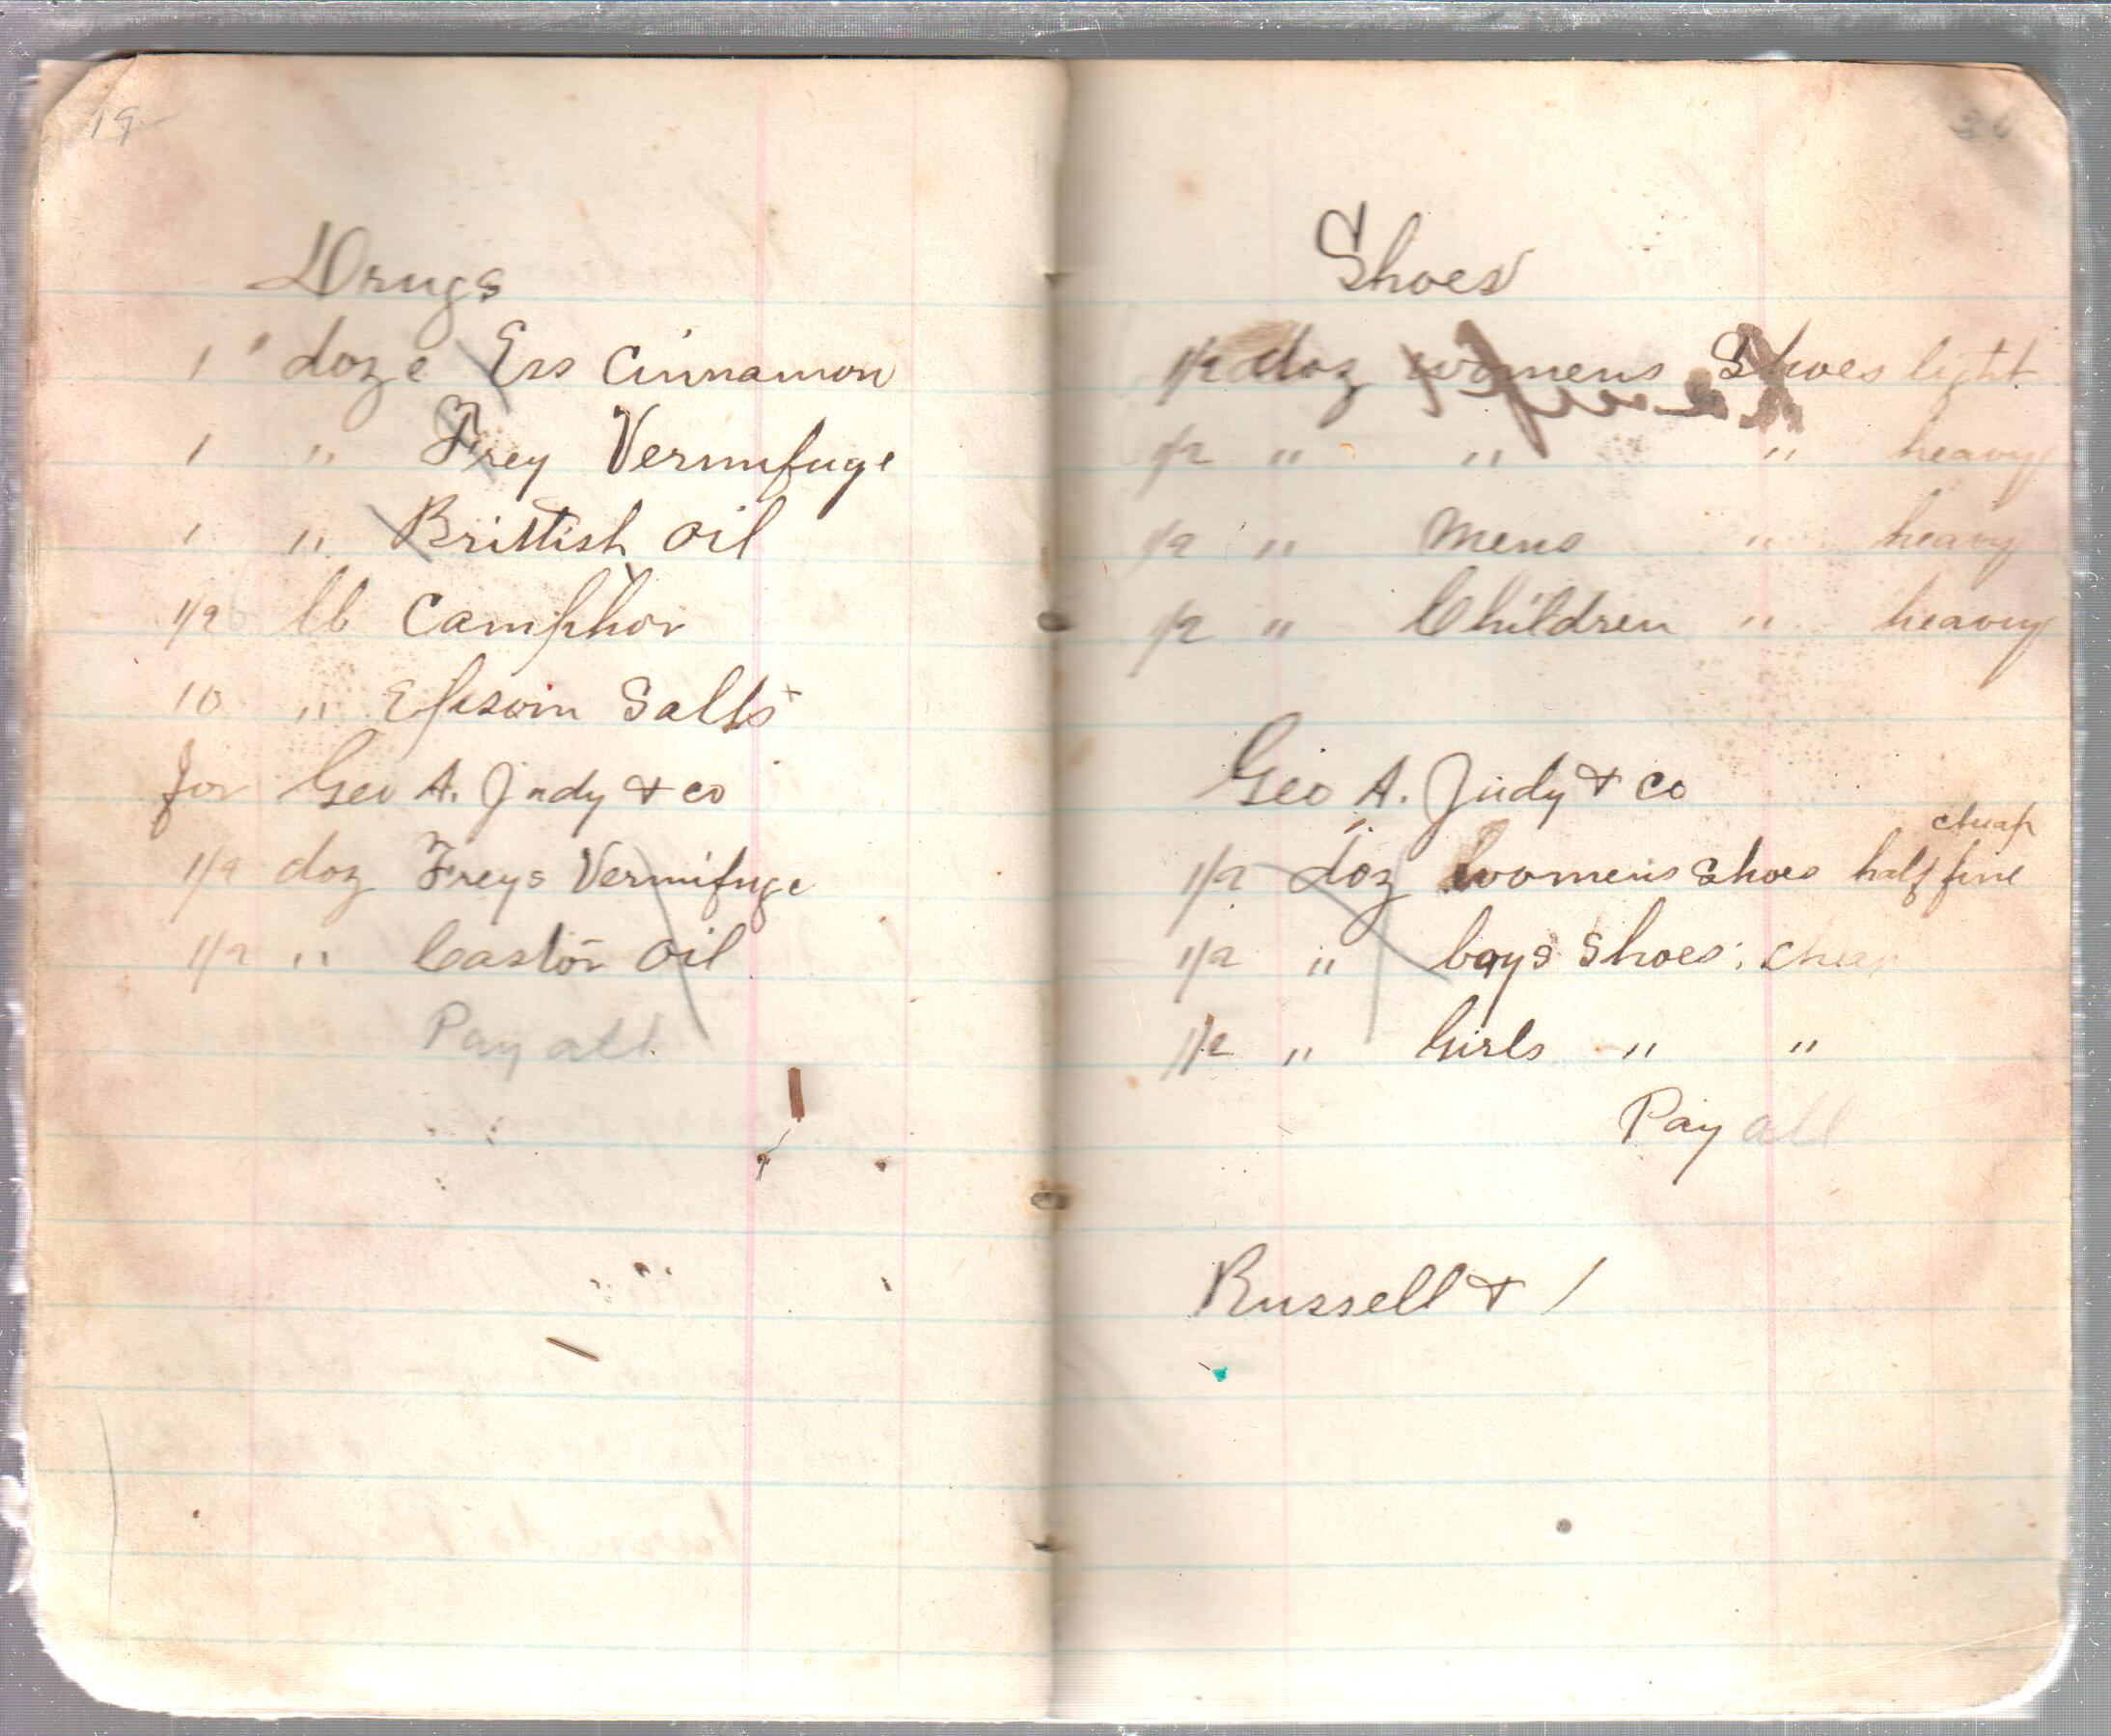 19
Drugs
1 " doz e Ess Cinnamon
1 " Frey Vermifuge
1 " Brittish Oil
1/2 lb Camphor
10 " Epsom Salts
for Geo A. Judy & co
1/2 doz Freys Vermifuge
1/2 " Castor Oil
Pay all
Shoes
1/2 doz womens Shoes light
1/2 " " " heavy
1/2 " Mens " heavy
1/2 " Children " heavy
Geo A. Judy & Co
cheap
1/2 doz womens Shoes half fine
1/2 " boys Shoes: cheap
1/2 " Girls " "
Pay all
Russell &